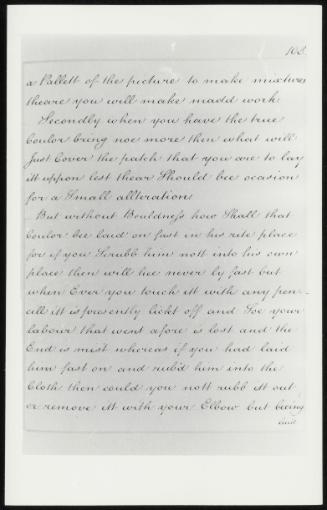 103.
a Pallett of the picture to make mixtures
theare you will make madd work
Secondly when you have the true
Coulor being noe more then what will
Just Cover the patch that you are to lay
itt uppon lest thear Should bee ocasion
for a Small allteration
But without Bouldness how Shall that
Coulor bee laid on fast in his rite place
for if you Scrubb him nott into his own
place then will hee never ly fast but
when Ever you touch itt with any pen-
cill itt is presently lickt off and Soe your
labour that went afore is lost and the
End is mist whereas if you had laid
him fast on and rub'd him into the
Cloth then could you nott rubb itt out
or remove itt with your Elbow but being
laid